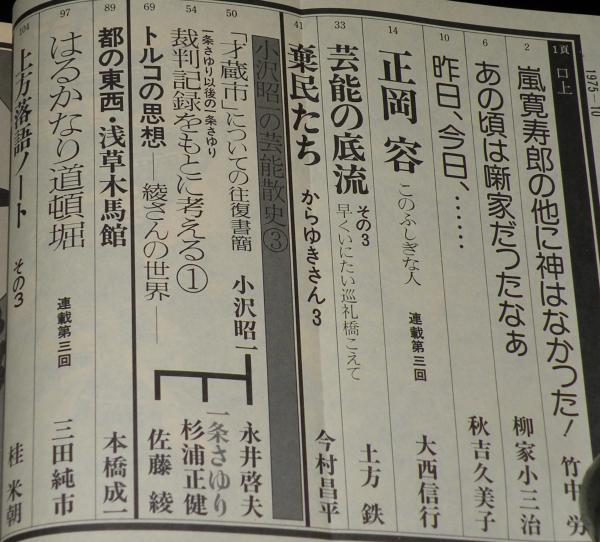 1975—10
1頁 口上
嵐寛寿郎の他に神はなかつた! 竹中 労
2 あの頃は噺家だつたなぁ 柳家小三治
6 昨日、今日、…… 秋吉久美子
10 正岡 容 このふしぎな人 連載第三回 大西信行
14 芸能の底流 その3 早くいにたい巡礼橋こえて 土方 鉄
33 棄民たち からゆきさん3 今村昌平
41 小沢昭一の芸能散史③
50 「才蔵市」についての往復書簡 小沢昭一 永井啓夫
54 一条さゆり以後の一条さゆり
裁判記録をもとに考える① 一条さゆり 杉浦正健
69 トルコの思想——綾さんの世界—— 佐藤 綾
89 都の東西・浅草木馬館 本橋成一
97 はるかなり道頓堀 連載第三回 三田純市
104 上方落語ノート その3 桂 米朝